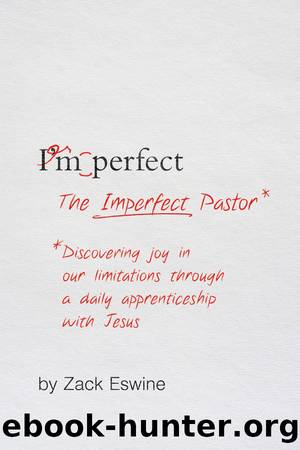 I'm perfect
The Imperfect Pastor*
*Discovering joy in
our limitations through
a daily apprenticeship
with Jesus
by Zack Eswine
ebook-hunter.org